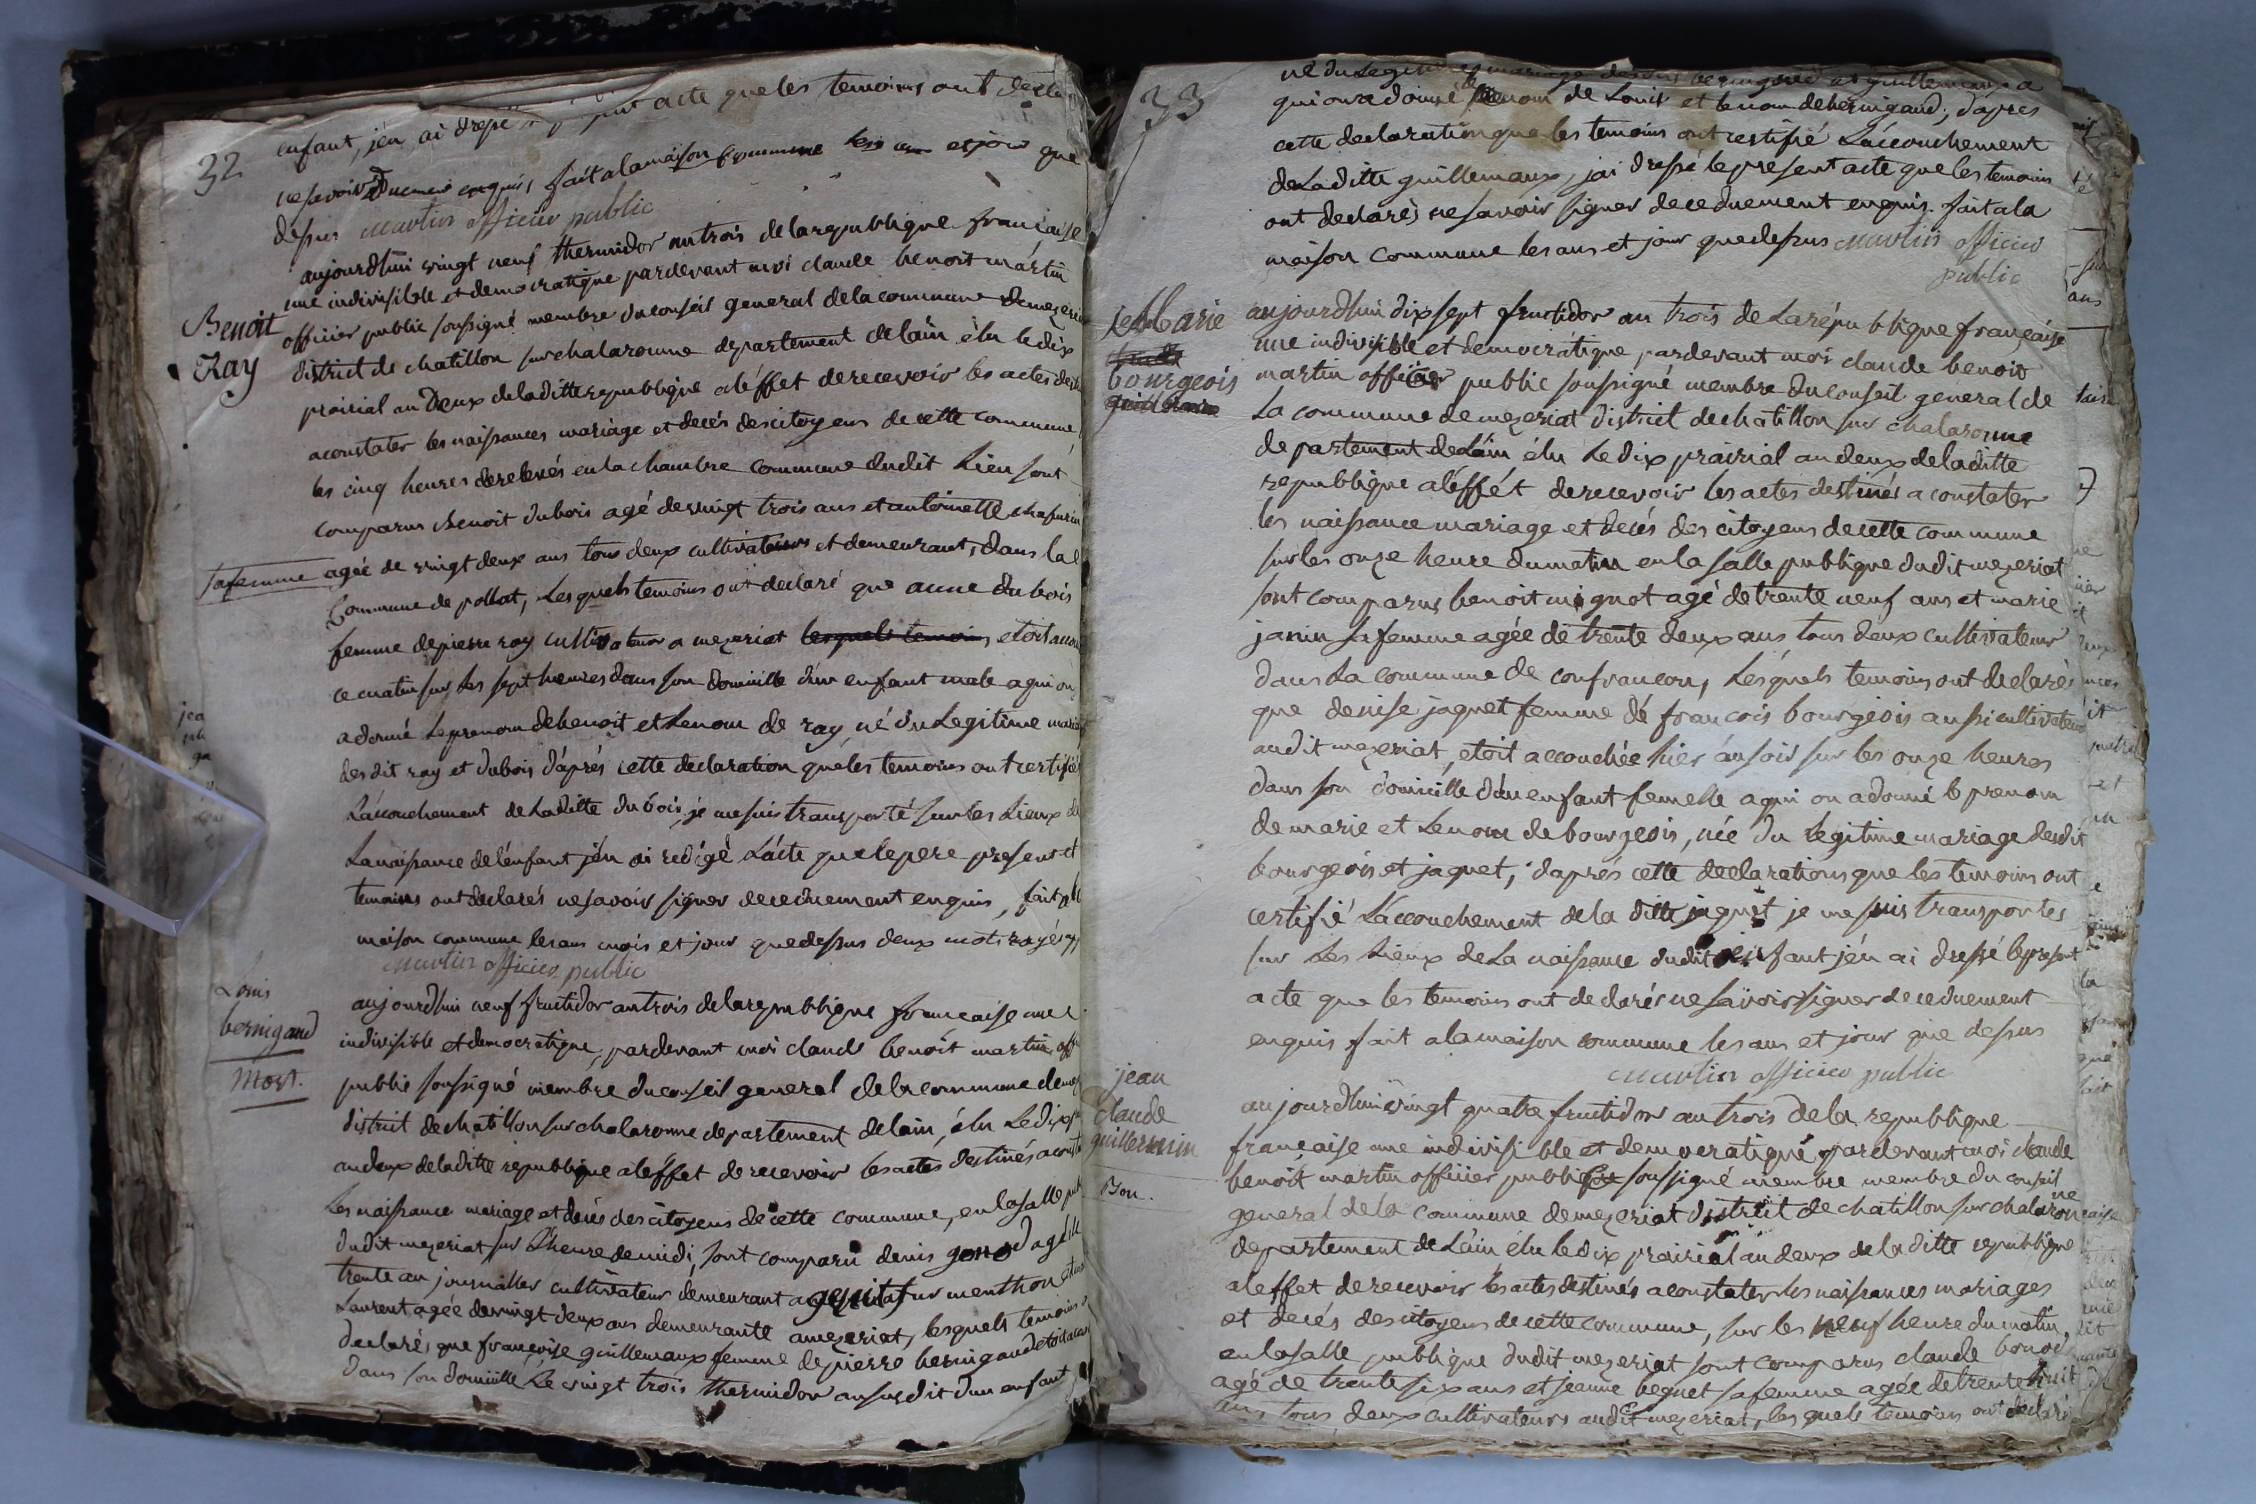 32
enfant, jén ai dressé acte queles temoins ont decla
nesavoir duement enquis, fait alamaison commune les an et jour que
dessus martin officier public
aujourdhui vingt neuf thermidor an trois delarepublique francaise
une indivisible et democratique pardevant moi claude benoit martin
Benoit
Ray
officier public soussigné membre duconseil general delacommune demezeria
district de chatillon sur chalaronne departement delain élu le dix
prairial an deux deladitte republique aléffet derecevoir les actes desti
aconstater les naissances mariage et decés descitoyens de cette commune,
les cinq heures derelevés en la chambre commune dudit Lieu sont
comparus Benoit dubois agé devingt trois ans et antoinette chafurin
safemme agée de vingt deux ans tous deux cultivateurs et demeurant, dans la
Commune de polliat, Lesquels temoins ont declaré que anne dubois
femme depierre ray cultivateur a mezeriat lesquels temoins etoit accou
ce matin sur les sept heures dans son domicille d'un enfant male aqui on
adonné Leprenom debenoit et Lenom de ray, né du Legitime maria
desdit ray et dubois d'aprés cette declaration queles temoins ont certifié
Láccouchement deLaditte dubois, je mesuis transporté surles Lieux de
Lanaissance delénfant jén ai redigé Lácte que lepere present et
temoins ont declarés nesavoir signer dececduement enquis, fait ala
maison commune lesans mois et jour quedessus deux mots rayés
martin officier public
Louis
bernigaud
Mort.
aujourdhui neuf fructidor antrois delarepublique francaise une
indivisible et democratique, pardevant moi claude benoit martin off
public soussigné membre duconseil general delacommune demez
district dechatillon surchalaronne departement delain, élu Ledix
andeux deladitte republique aléffet derecevoir lesactes destinés aconsta
Les naissance mariage et decés des citoyens de cette commune, enlasalle pub
dudit mezeriat sur Lheure demidi, sont comparu denis gonod agé
trente an journallier cultivateur demeurant a sur menthon
Laurent agée devingt deux ans demeurante amezeriat, lesquels temoins
declarés que francoise guillemaux femme depierre bernigaud etoit accou
dans son domicille Le vingt trois thermidor ansusdit dun enfant
33
né du Legitime mariage bernigaud et guillemaux a
qui on a donné leprenom de Louis et lenom debernigaud; d'apres
cette declaration que les temoins ont certifié Láccouchement
deLaditte guillemaux, jai dressé lepresent acte que les temoins
ont declarés nesavoir signer dececduement enquis. fait ala
maison commune les ans et jour quedessus martin officier
public
Marie
bourgeois
aujourdhui dixsept fructidor an trois de Larépublique française
une indivisible et democratique pardevant moi claude benoit
martin officier public soussigné membre duconseil general de
La commune demezeriat district dechatillon sur chalaronne
departement deLáin élu Ledix prairial andeux deladitte
republique aléffét derecevoir les actes destinés a constater
les naissance mariage et decés des citoyens decette commune
sur les onze heure dumatin enla salle publique dudit mezeriat
sont comparus benoit mignot agé detrente neuf ans et marie
janin safemme agée de trente deux ans tous deux cultivateur
dans La commune de confrancon, Lésquels temoins ont declarés
que denise jaquet femme dé francois bourgeois aussi cultivateur
audit mezeriat, etoit accouchée hier áusoir sur les onze heures
dans son domicille dún enfant femelle aqui on adonné le prenom
demarie et Lenom debourgeois, née du Legitime mariage desdit
bourgeois et jaquet, d'aprés cette declaration que les temoins ont
certifié Láccouchement dela ditte jaquet je mesuis transportés
sur Les Lieux deLa naissance dudit enfant jén ai dressé lepresent
acte que les temoins ont declarés nesavoir signer dececduement
enquis fait alamaison commune les ans et jour que dessus
martin officier public
jean
claude
guillermin
Bon.
aujourdhui vingt quatre fructidor antrois dela republique
française une indivisible et democratique pardevant moi claude
benoit martin officier publique soussigné membre membre du conseil
general dela commune demezeriat district de chatillon sur chalaronne
departement deLáin élu ledix prairial an deux dela ditte republique
aleffet derecevoir lesactes destinés aconstater les naissances mariages
et decés descitoyens decette commune, sur les neuf heure dumatin,
enlasalle publique dudit mezeriat sont comparus claude
agé de trente six ans et jeanne beguet safemme agée detrente huit
ans tous deux cultivateurs audit mezeriat, lesquels temoins ont declaré